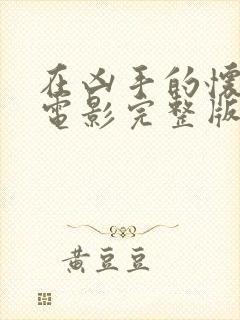 在凶手的怀
电影完整版
黄豆豆